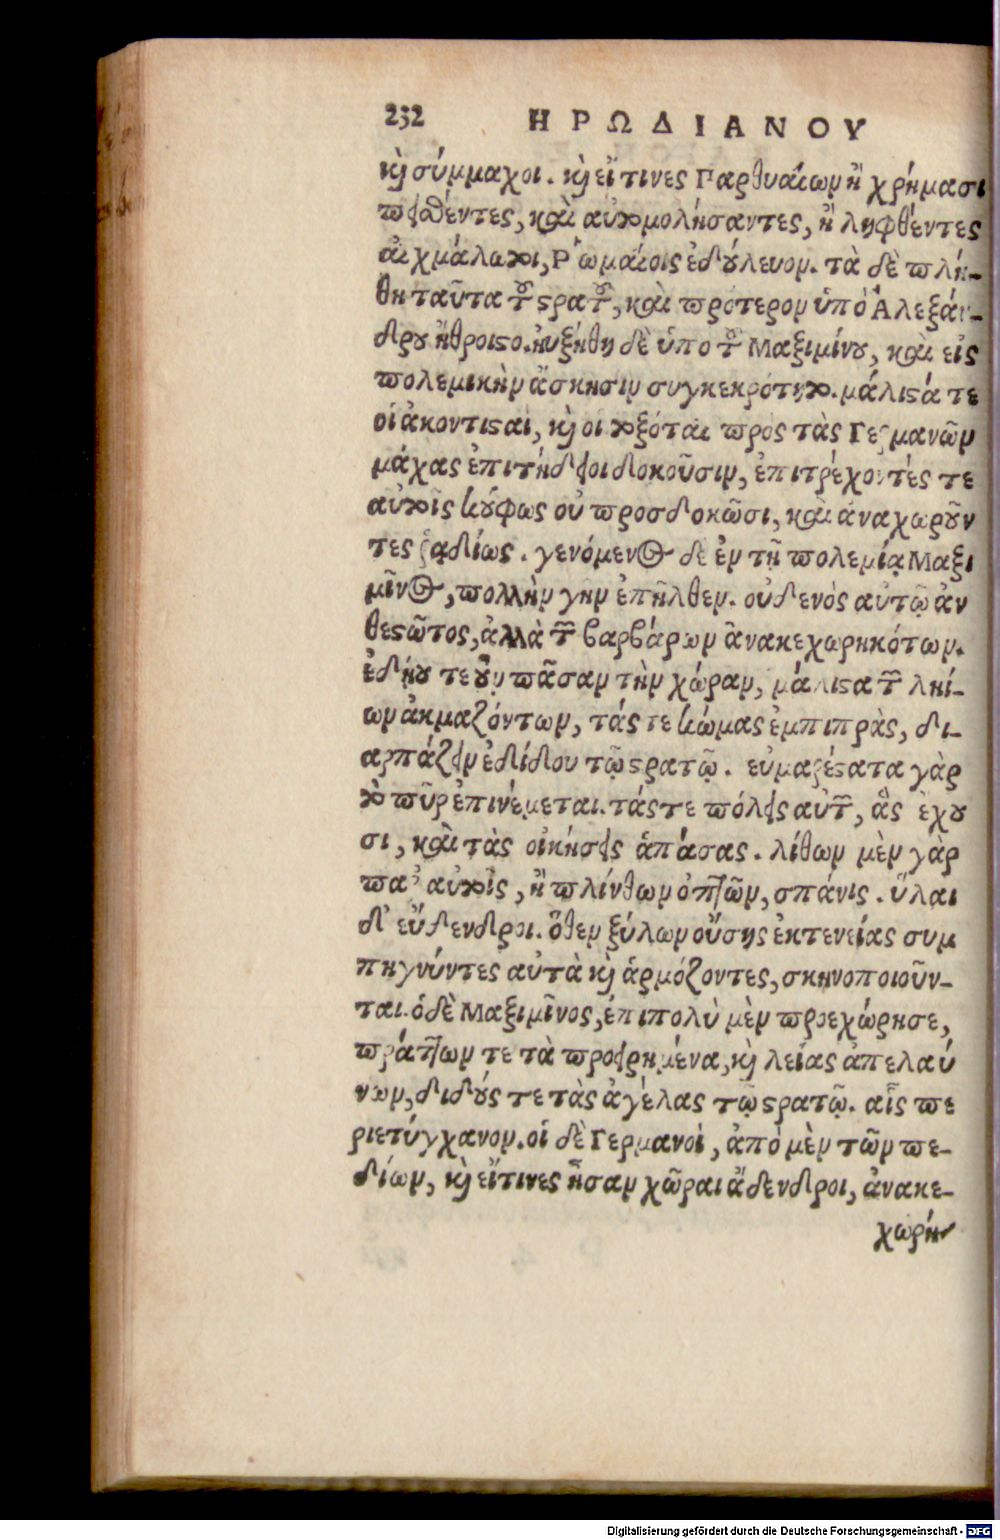 232 ΗΡΩΔΙΑΝΟΥ
κ̀ σύμμαχοι. κ̀ εἴ τινες Παρθυαίων ἢ χρήμασι
πεισθέντες, καὶ αὐτομολήσαντες, ἢ ληφθέντες
αἰχμάλωτοι, Ῥωμαίοις ἐδούλευον. τὰ δὲ πλή-
θη ταῦτα τοῦ στρατοῦ, καὶ πρότερον ὑπὸ Ἀλεξάν-
δρου ἤθροιστο. ηὐξήθη δὲ ὑπὸ τοῦ Μαξιμίνου, καὶ εἰς
πολεμικὴν ἄσκησιν συγκεκρότητο. μάλιστά τε
οἱ ἀκοντισταὶ, κ̀ οἱ τοξόται πρὸς τὰς Γερμανῶν
μάχας ἐπιτήδειοι δοκοῦσιν, ἐπιτρέχοντές τε
αὐτοῖς κούφως οὐ προσδοκῶσι, καὶ ἀναχωροῦν
τες ῥᾳδίως. γενόμενος δὲ ἐν τῇ πολεμίᾳ Μαξι
μῖνος, πολλὴν γῆν ἐπῆλθεν. οὐδενὸς αὐτῷ ἀν
θεστῶτος, ἀλλὰ τῶν βαρβάρων ἀνακεχωρηκότων.
ἐδῄου τε οὖν πᾶσαν τὴν χώραν, μάλιστα τῶν ληί-
ων ἀκμαζόντων, τάς τε κώμας ἐμπιπρὰς, δι-
αρπάζειν ἐδίδου τῷ στρατῷ. εὐμαρέστατα γὰρ
τὸ πῦρ ἐπινέμεται. τάς τε πόλεις αὐτῶν, ἃς ἔχου
σι, καὶ τὰς οἰκήσεις ἁπάσας. λίθων μὲν γὰρ
παρ’ αὐτοῖς, ἢ πλίνθων ὀπτῶν, σπάνις. ὕλαι
δ’ εὔδενδροι. ὅθεν ξύλων οὔσης ἐκτενείας συμ
πηγνύντες αὐτὰ κ̀ ἁρμόζοντες, σκηνοποιοῦν-
ται. ὁ δὲ Μαξιμῖνος, ἐπιπολὺ μὲν προεχώρησε,
πράττων τε τὰ προειρημένα, κ̀ λείας ἀπελαύ
νων, διδούς τε τὰς ἀγέλας τῷ στρατῷ. αἷς πε
ριετύγχανον. οἱ δὲ Γερμανοὶ, ἀπὸ μὲν τῶν πε-
δίων, κ̀ εἴτινες ἦσαν χῶραι ἄδενδροι, ἀνακε-
χωρή-
Digitalisierung gefördert durch die Deutsche Forschungsgemeinschaft - DFG